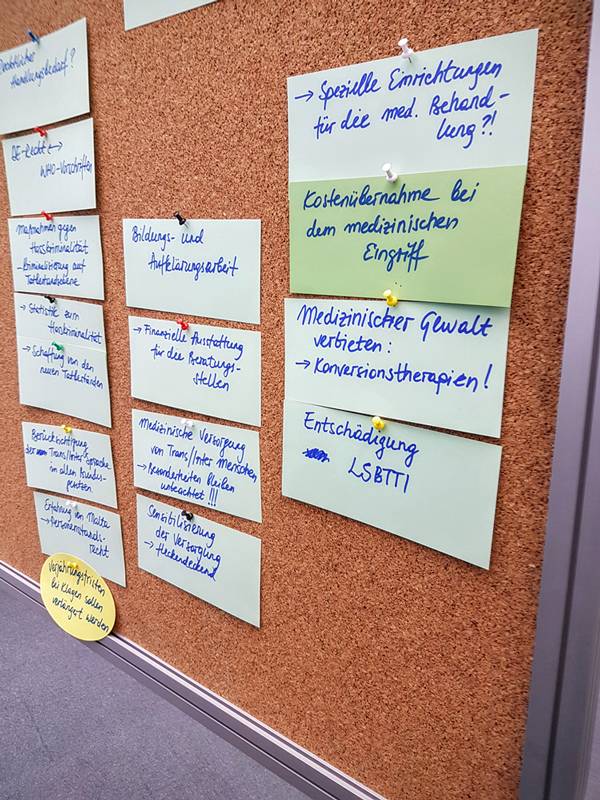 Rechtlicher
Handlungsbedarf?
DE-Recht ↔
WHO-Vorschriften
Maßnahmen gegen
Hasskriminalität
Kriminalisierung auf
Tatbestandsebene
→ Statistik zum
Hasskriminalität
→ Schaffung von den
neuen Tatbeständen
Berücksichtigung
der Trans/Inter Sprache
in allen Bundes-
gesetzen.
Erfahrung von Malta
→ Personenstands-
recht
Verjährungsfristen
bei Klagen sollen
verlängert werden
Bildungs- und
Aufklärungsarbeit
→ Finanzielle Ausstattung
für die Beratungs-
stellen
Medizinische Versorgung
von Trans/Inter Menschen
→ Besonderheiten bleiben
unbeachtet!!!
Sensibilisierung
der Versorgung
→ flächendeckend
→ Spezielle Einrichtungen
für die med. Behand-
lung?!
Kostenübernahme bei
dem medizinischen
Eingriff
Medizinischer Gewalt
verbieten:
→ Konversionstherapien!
Entschädigung
LSBTTI